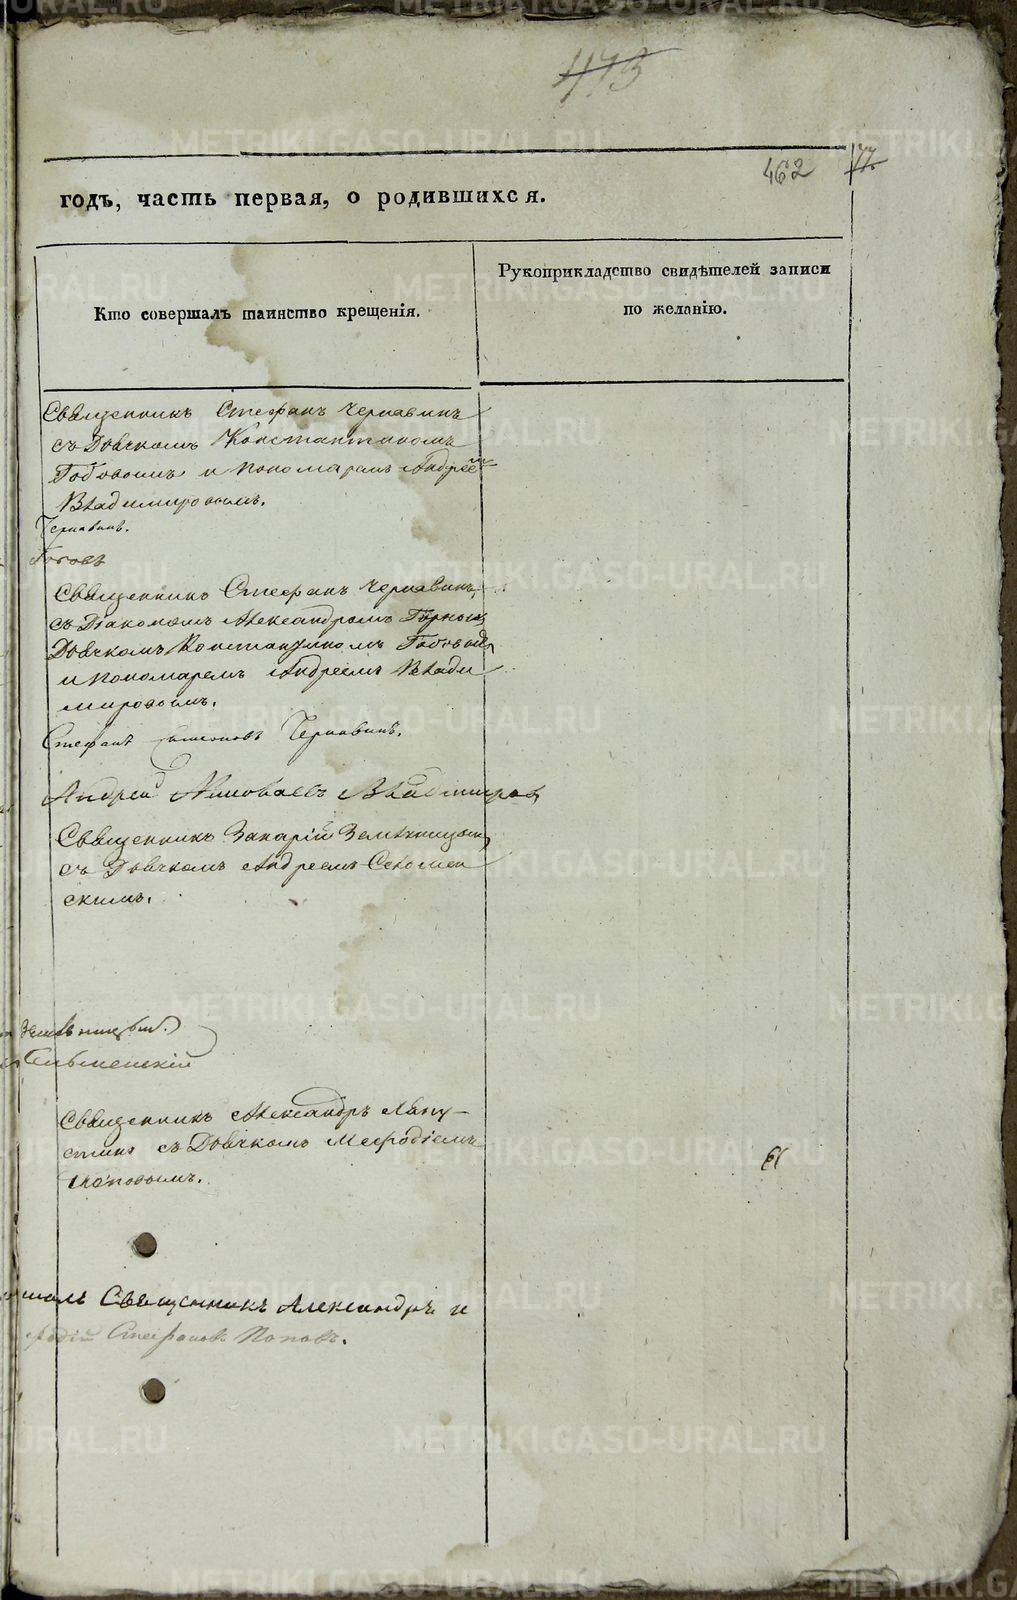 473
462 77
годъ, часть первая, о родившихся.
Кто совершалъ таинство крещенія.
Рукоприкладство свидѣтелей записи
по желанію.
Священникъ Стефанъ Чернавинъ
съ Дьячкомъ Константиномъ
и пономаремъ Андреемъ
Владимировымъ.
Чернавинъ.
Священникъ Стефанъ Чернавинъ
съ Діакономъ Александромъ
Дьячкомъ Константиномъ
и пономаремъ Андреемъ Влади
мировымъ.
Стефанъ Чернавинъ.
Андрей Владимировъ
Священникъ Захарій Земляницынъ
съ Дьячкомъ Андреемъ
скимъ.
Земляницынъ.
Священникъ Александръ Лапу-
тинъ съ Дьячкомъ Мефодіемъ
Поповымъ.
шалъ Священникъ Александръ и
фодій Стефановъ Поповъ.
METRIKI.GASO-URAL.RU